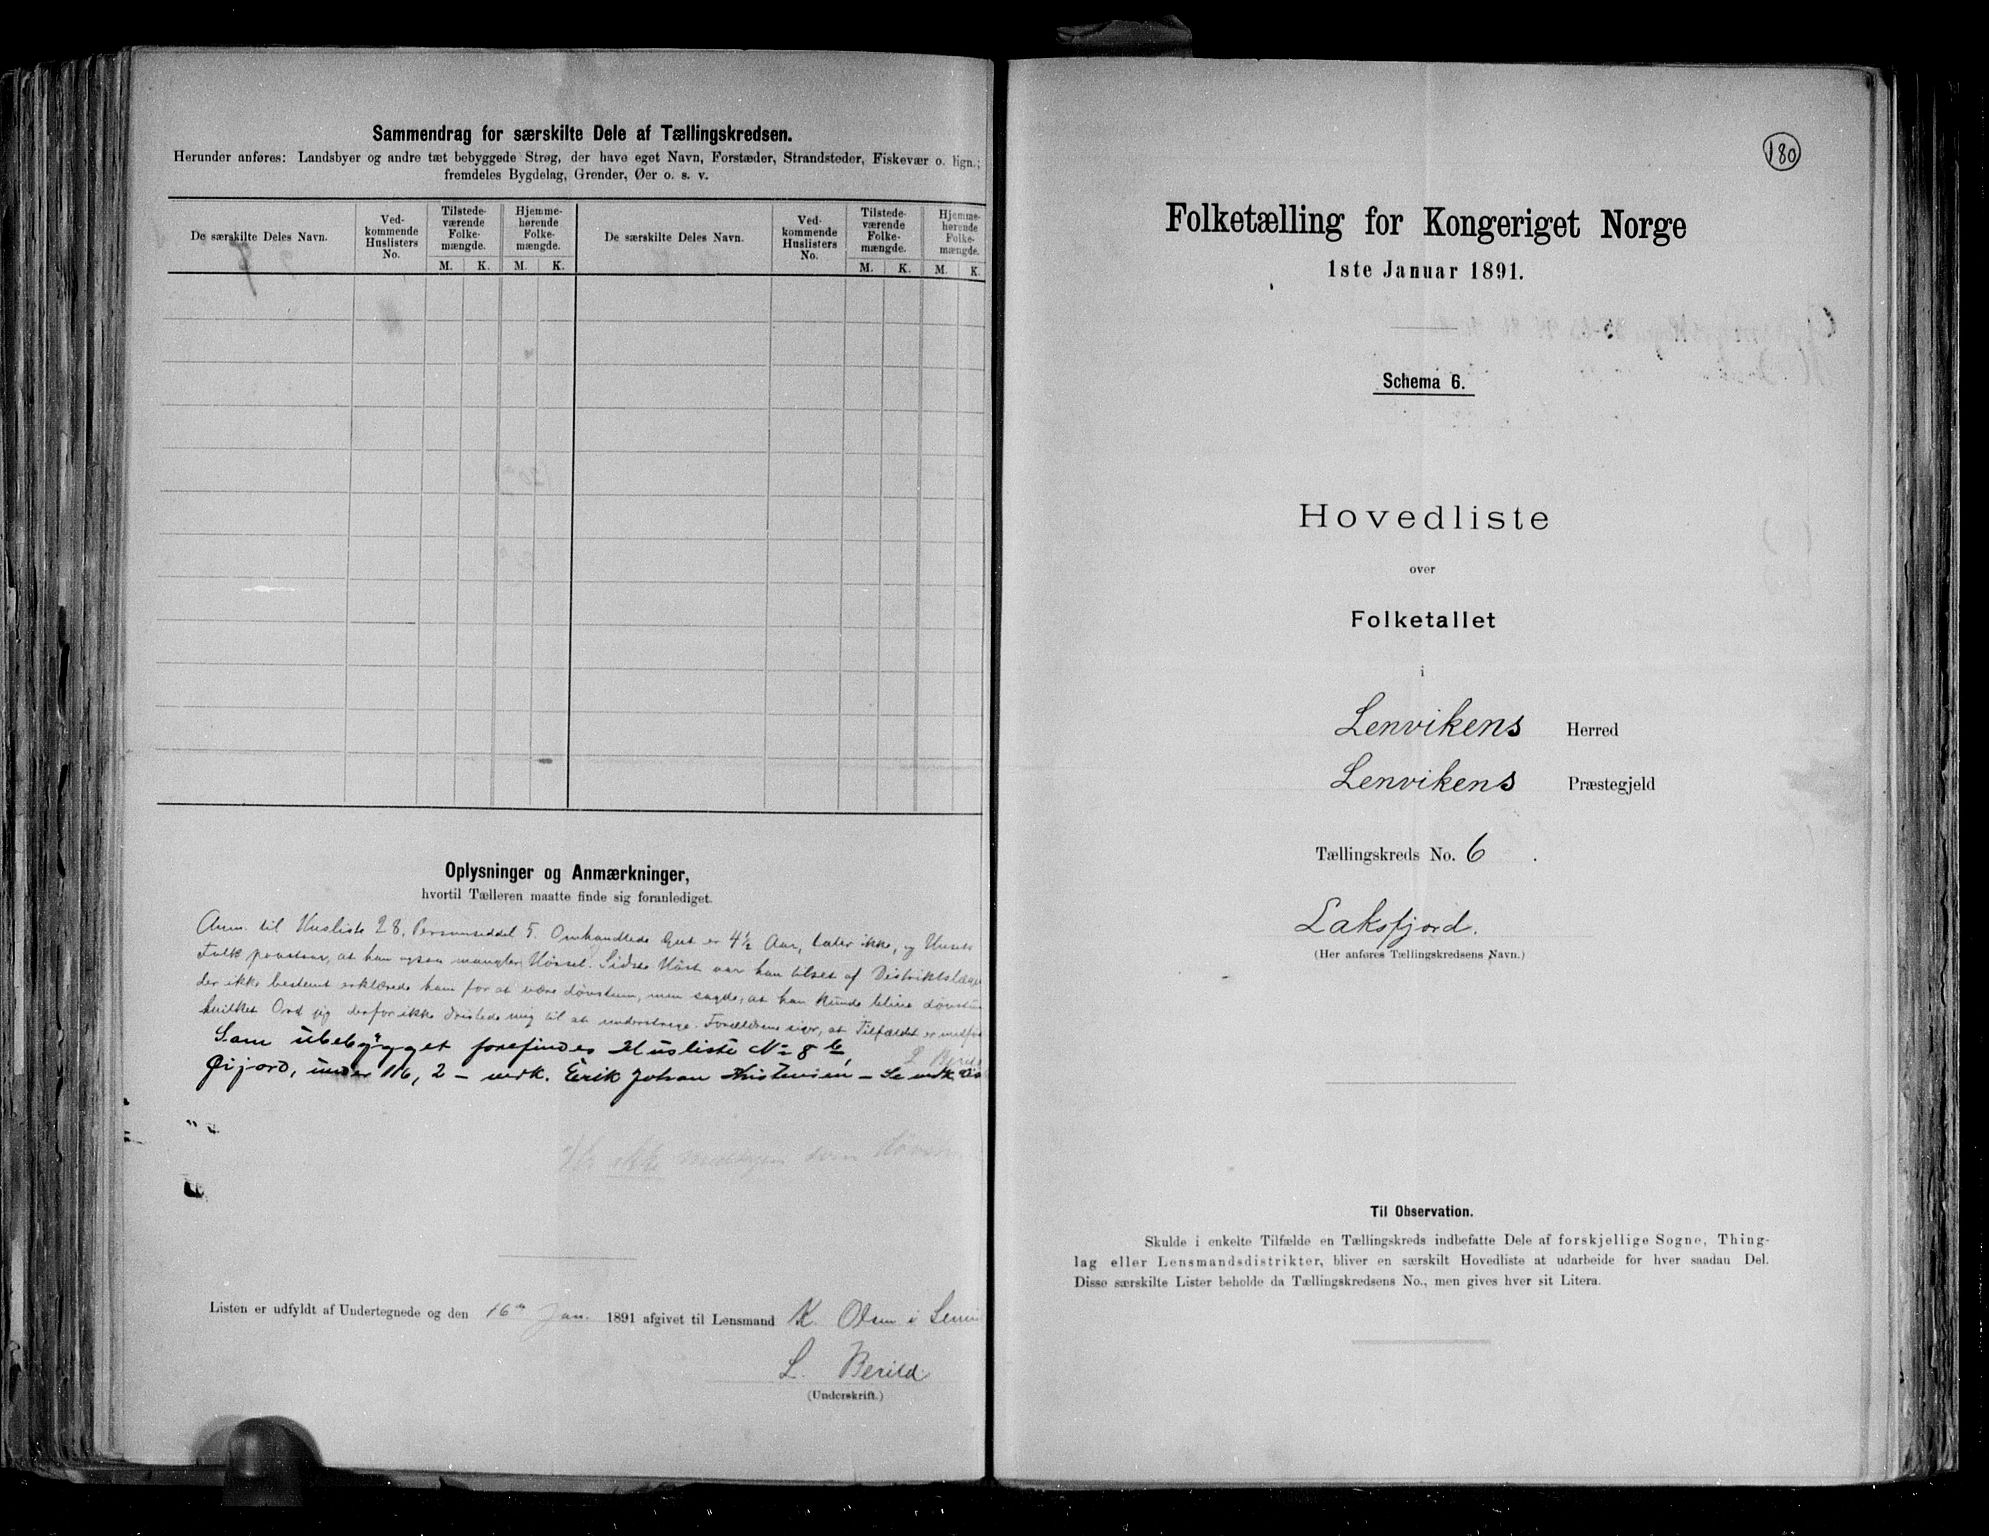 Sammendrag for særskilte Dele af Tællingskredsen.
Herunder anføres: Landsbyer og andre tæt bebyggede Strøg, der have eget Navn, Forstæder, Strandsteder, Fiskevær o. lign.;
fremdeles Bygdelag, Grender, Øer o. s. v.
De særskilte Deles Navn.
Ved-
kommende
Huslisters
No.
Tilstede-
værende
Folke-
mængde.
M. K.
Hjemme-
hørende
Folke-
mængde.
M. K.
De særskilte Deles Navn.
Ved-
kommende
Huslisters
No.
Tilstede-
værende
Folke-
mængde.
M. K.
Hjemme-
hørende
Folke-
mængde.
M. K.
Oplysninger og Anmærkninger,
hvortil Tælleren maatte finde sig foranlediget.
Anm. til Husliste 28, Personseddel 5. Omhandlede Gut er 4½ Aar, taler ikke, og Husets
Folk paastaar, at han ogsaa mangler Hørsel. Sidste Høst var han tilset af Distriktslæge
der ikke bestemt erklærede ham for at være døvstum, men sagde, at han kunde blive døvstum
hvilket Ord jeg derfor ikke dristede mig til at understrege. Forældrene siger, at Tilfældet er medfø
L Berild
Som ubebygget forefindes Husliste No 8 b,
Øijord, under 116, 2 – mrk. Erik Johan Kristensen –
ikke
Listen er udfyldt af Undertegnede og den 16de Jan. 1891 afgivet til Lensmand K. Olsen i
L. Berild
(Underskrift.)
180
Folketælling for Kongeriget Norge
1ste Januar 1891.
Schema 6.
Hovedliste
over
Folketallet
i
Lenvikens Herred
Lenvikens Præstegjeld
Tællingskreds No. 6.
Laksfjord.
(Her anføres Tællingskredsens Navn.)
Til Observation.
Skulde i enkelte Tilfælde en Tællingskreds indbefatte Dele af forskjellige Sogne, Thing-
lag eller Lensmandsdistrikter, bliver en særskilt Hovedliste at udarbeide for hver saadan Del.
Disse særskilte Lister beholde da Tællingskredsens No., men gives hver sit Litera.